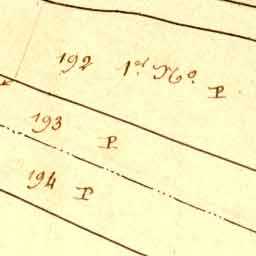 192 1.º Nº. P
193 P
194 P